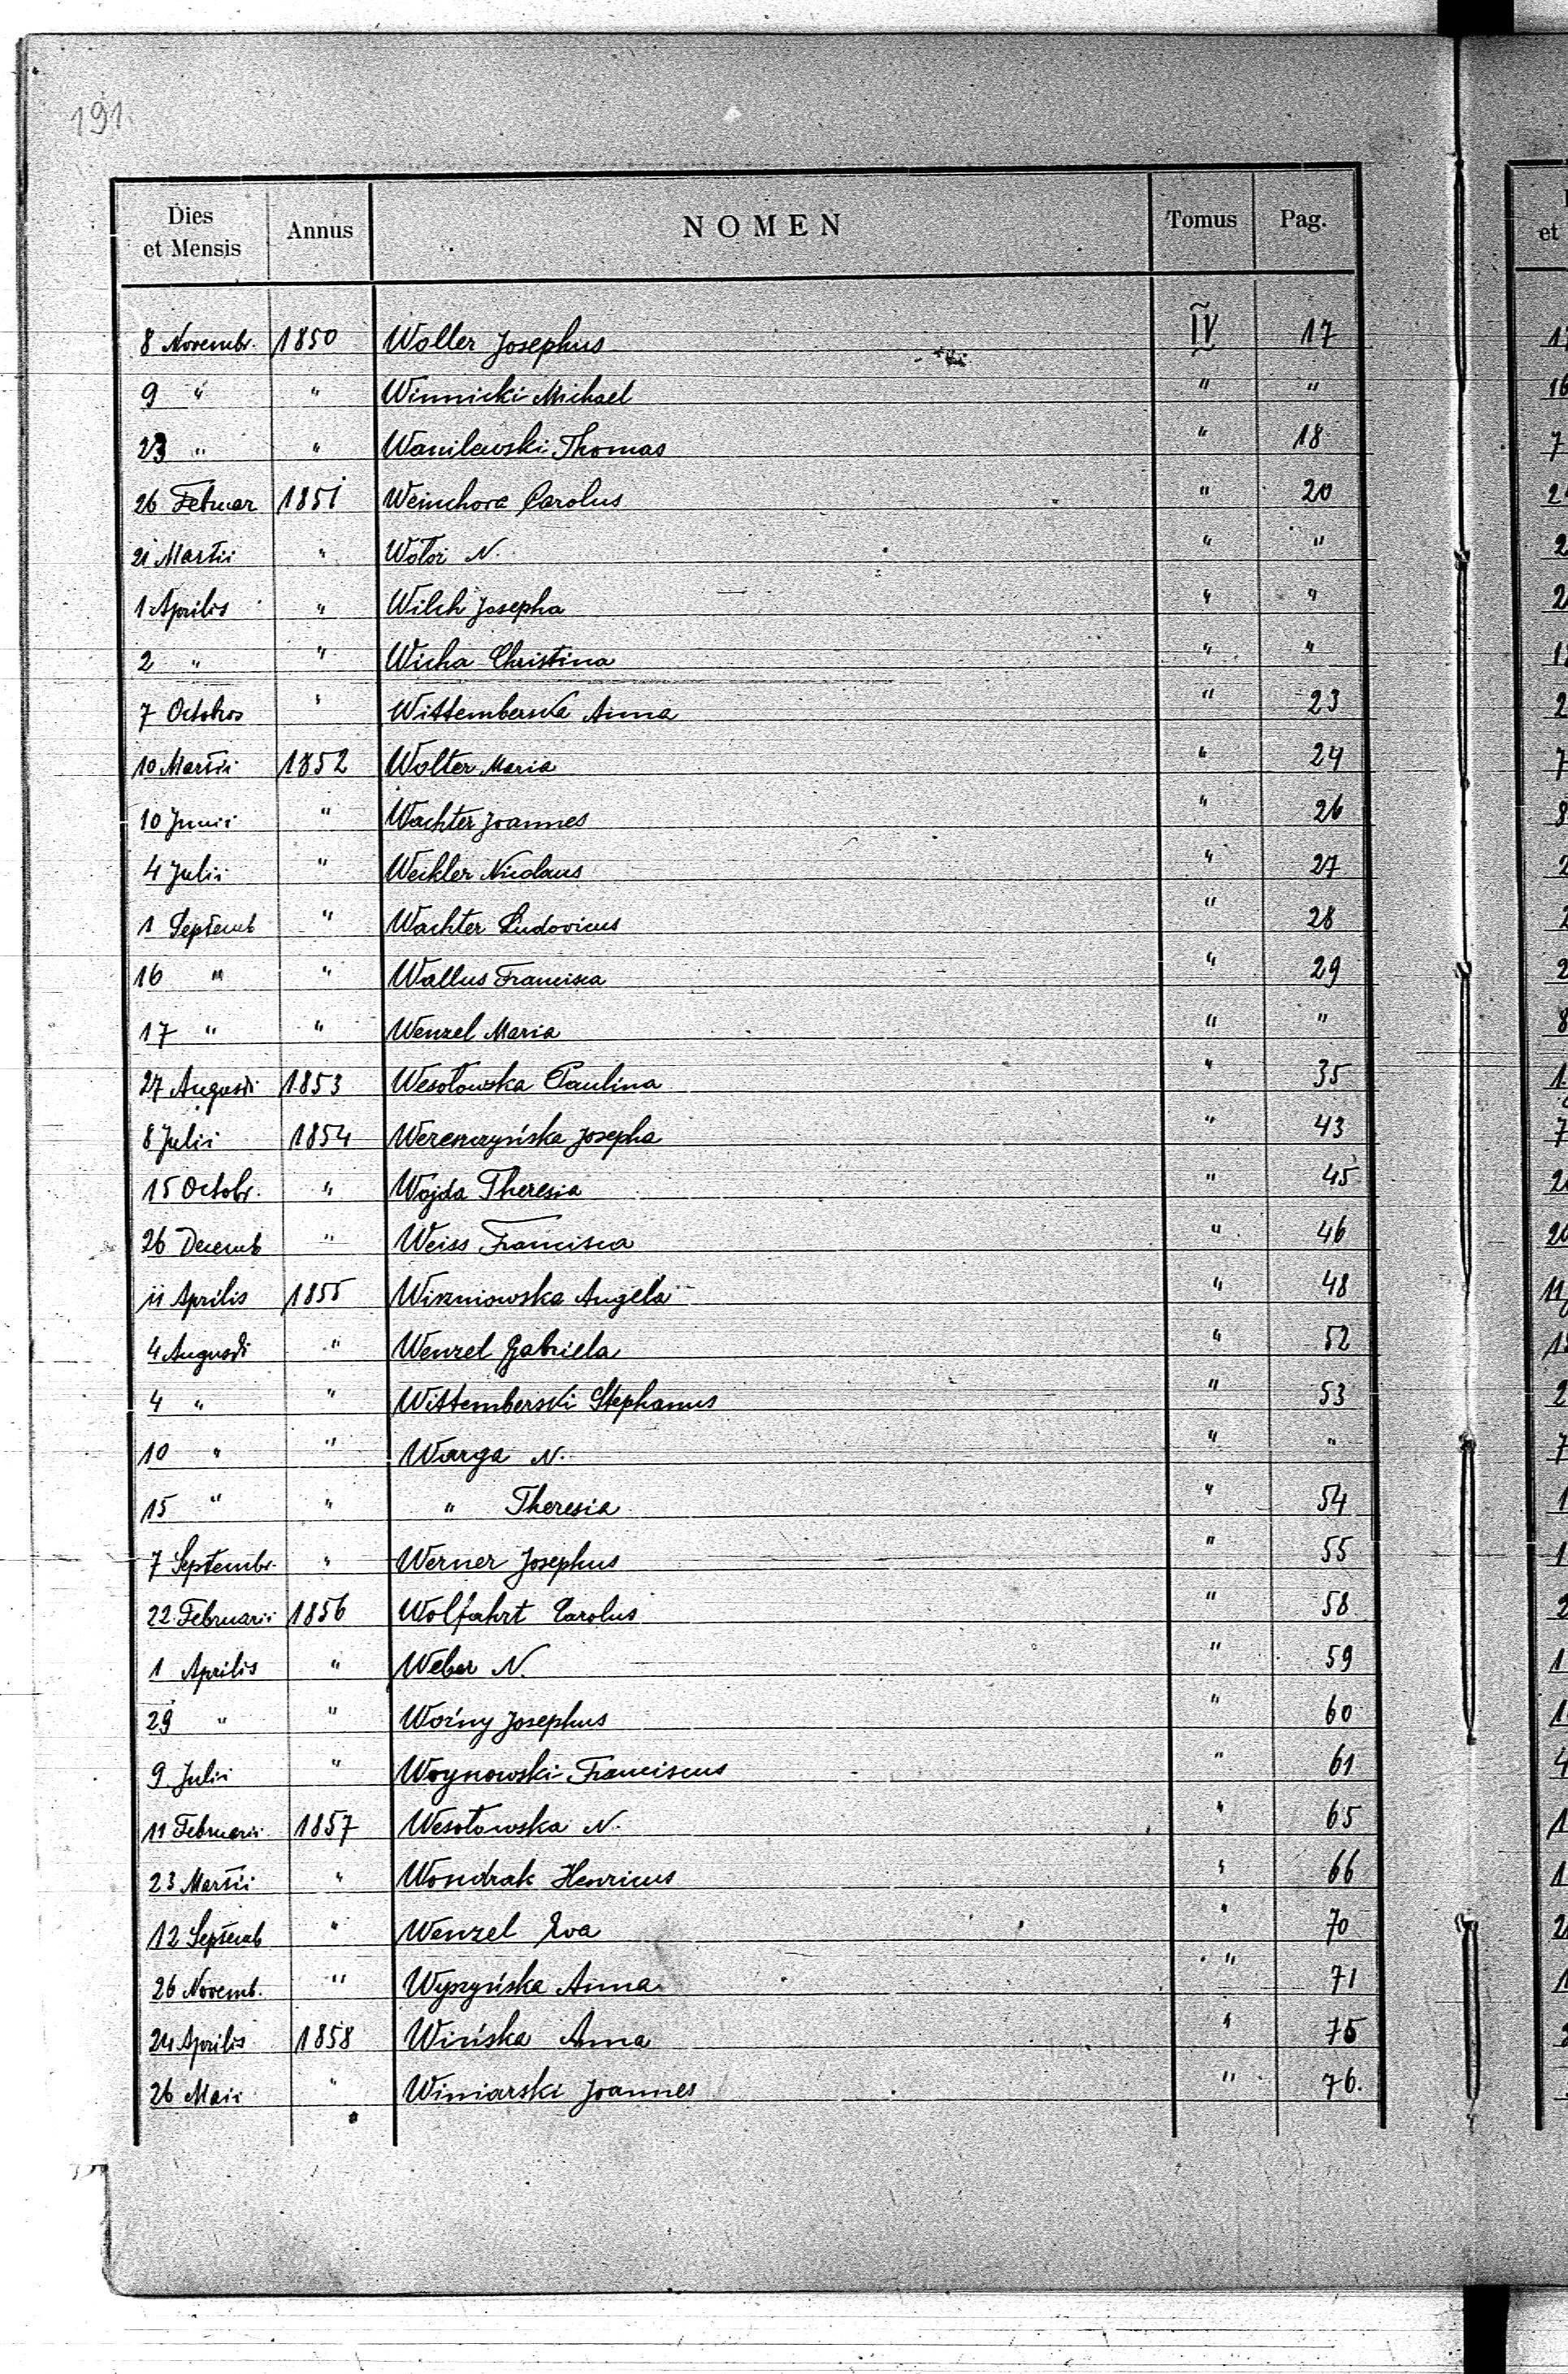 191.
Dies et Mensis Annus NOMEN Tomus Pag.
8 Novembr. 1850 Woller Josephus IV 17
9 " " Winnicki Michael " "
23 " " Wanilewski Thomas " 18
26 Februar 1851 Weinchora Carolus " 20
21 Martii " N. " "
1 Aprilis " Wilch Josepha " "
2 " " Wicha Christina " "
7 Octobros " Wittemberska Anna " 23
10 Martii 1852 Wolter Maria " 24
10 Junii " Wachter Joannes " 26
4 Julii " Weikler Nicolaus " 27
1 Septemb " Wachter Ludovicus " 28
16 " " Wallus Francisca " 29
17 " " Wenzel Maria " "
27 Augusti 1853 Wesołowska Paulina " 35
8 Julii 1854 Wereszczyńska Josepha " 43
15 Octobr. " Wojda Theresia " 45
26 Decemb " Weiss Francisca " 46
11 Aprilis 1855 Wiszniowska Angela " 48
4 Augusti " Wenzel Gabriela " 52
4 " " Wittemberski Stephanus " 53
10 " " Warga N. " "
15 " " " Theresia " 54
7 Septembr. " Werner Josephus " 55
22 Februarii 1856 Wolfahrt Carolus " 58
1 Aprilis " Weber N. " 59
29 " " Woźny Josephus " 60
9 Julii " Woynowski Franciscus " 61
11 Februarii 1857 Wesołowska N. " 65
23 Martii " Wondrak Henricus " 66
12 Septemb " Wenzel Eva " 70
26 Novemb. " Wyszyńska Anna " 71
24 Aprilis 1858 Wińska Anna " 75
26 Maii " Winiarski Joannes " 76.